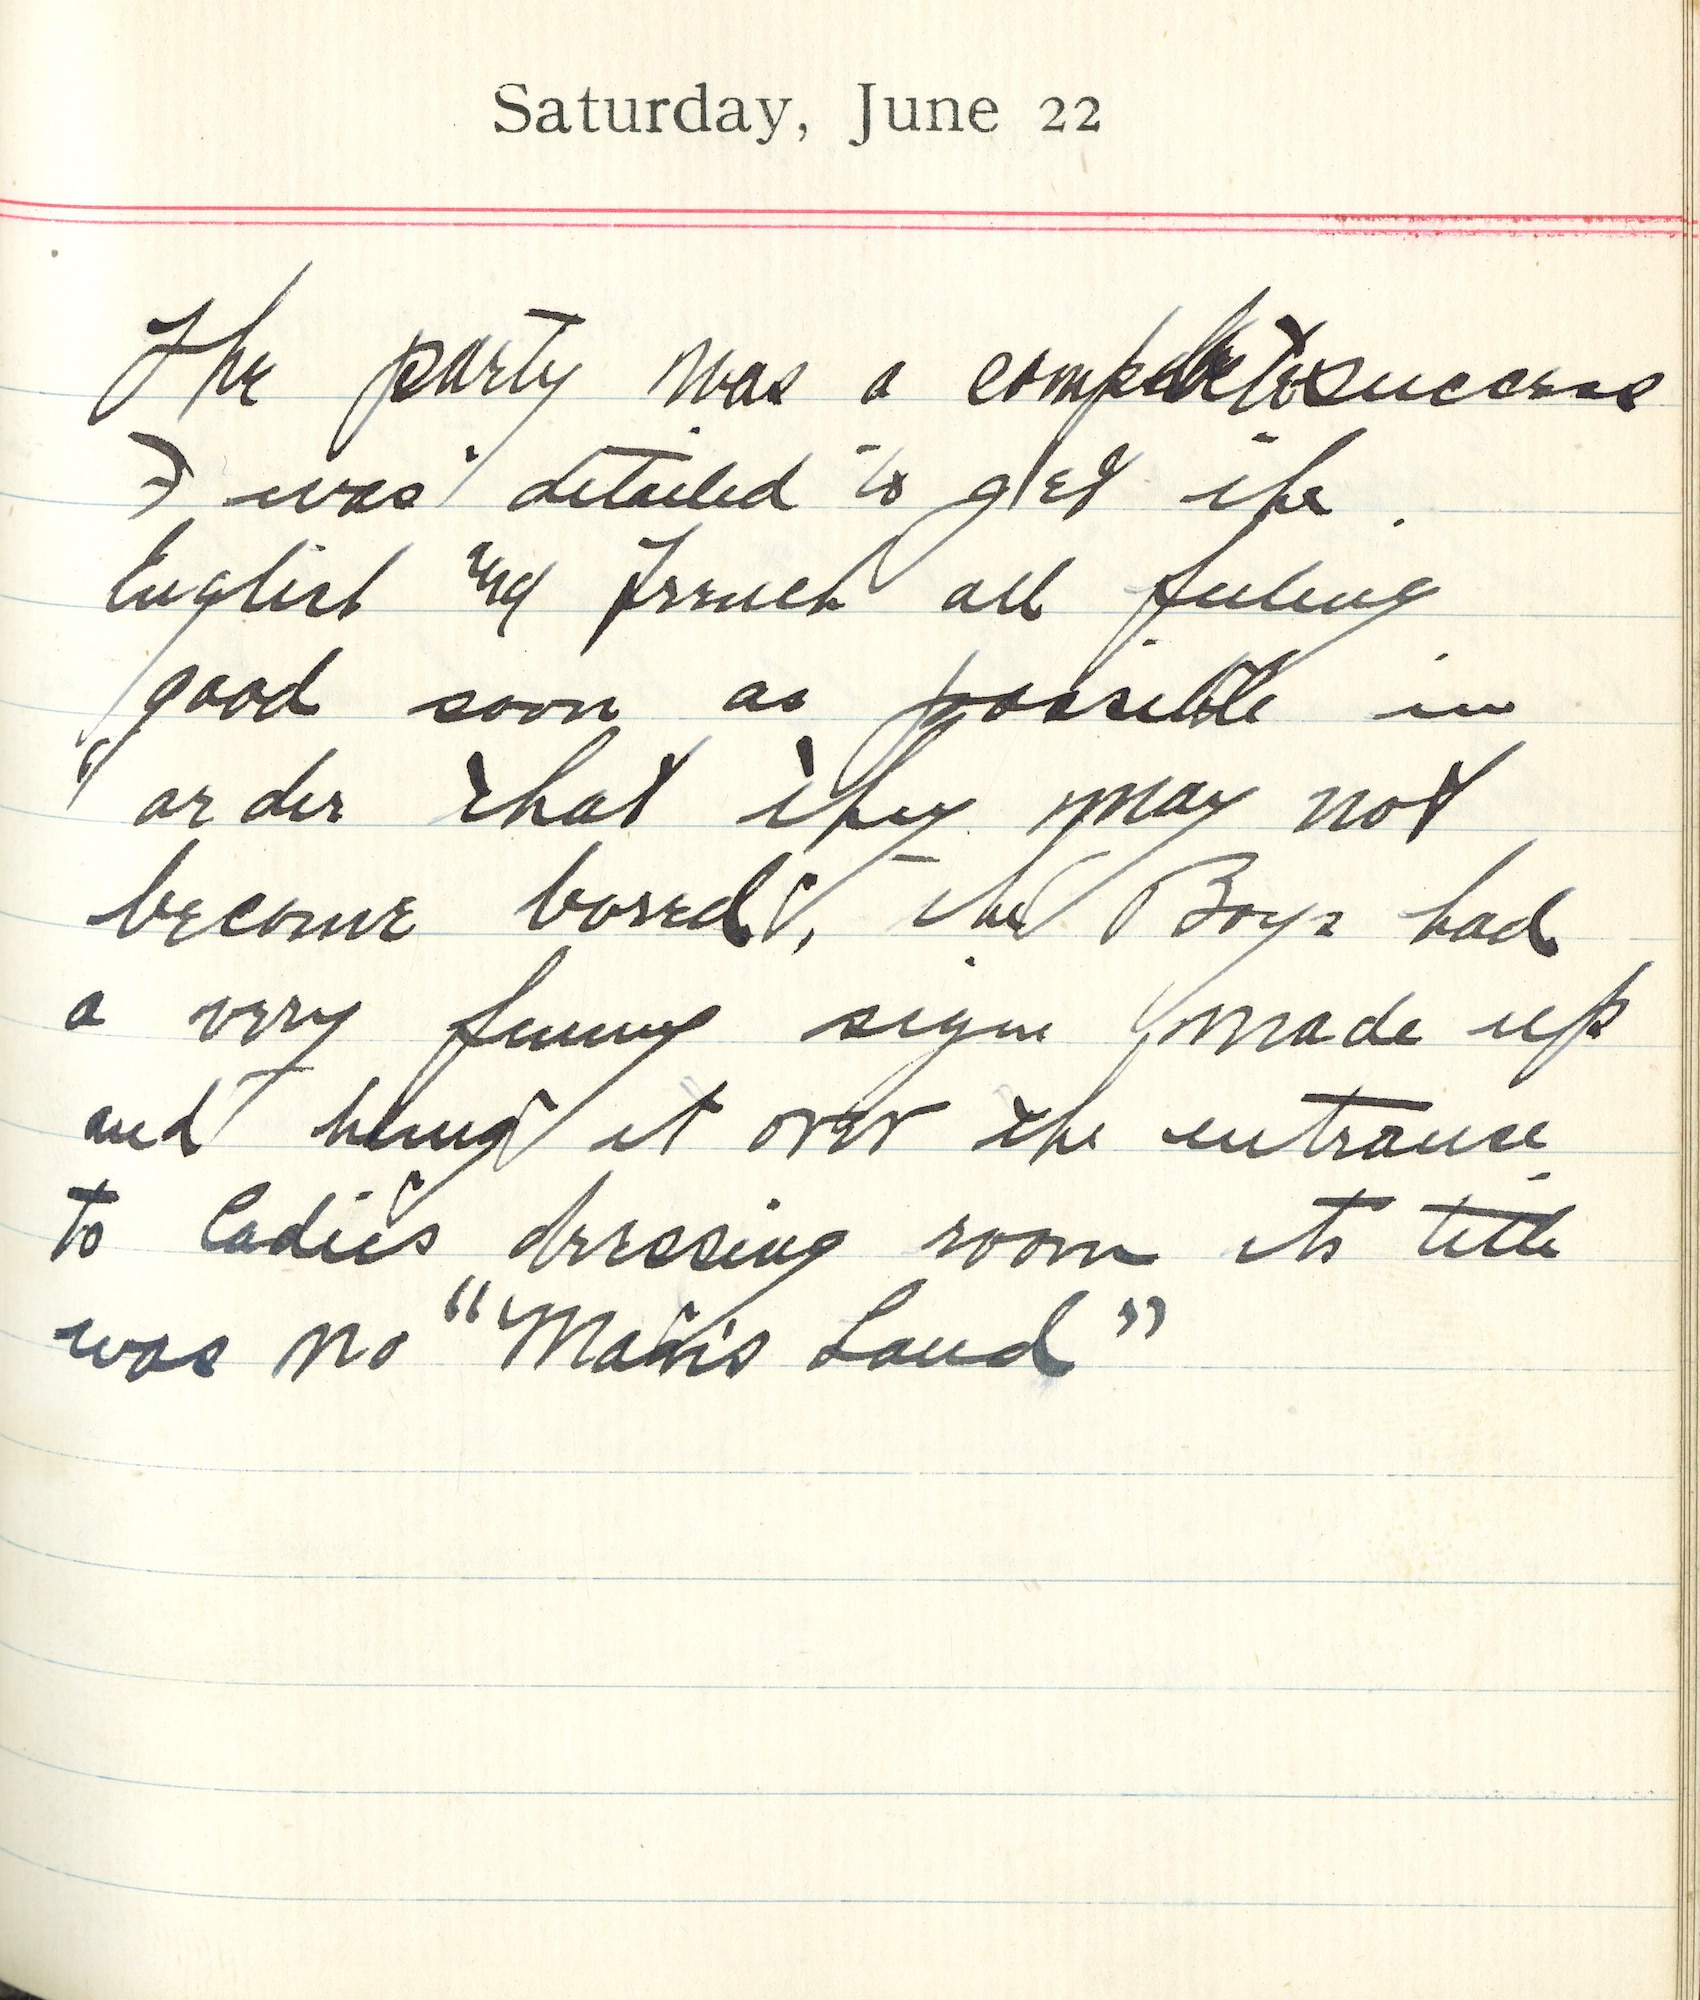 Saturday, June 22
The party was a complete success
I was detailed to get the
English and French all feeling
good soon as possible in
order that they may not
become bored, the Boys had
a very funny sign made up
and hung it over the entrance
to ladies dressing room its title
was no "Man's Land"